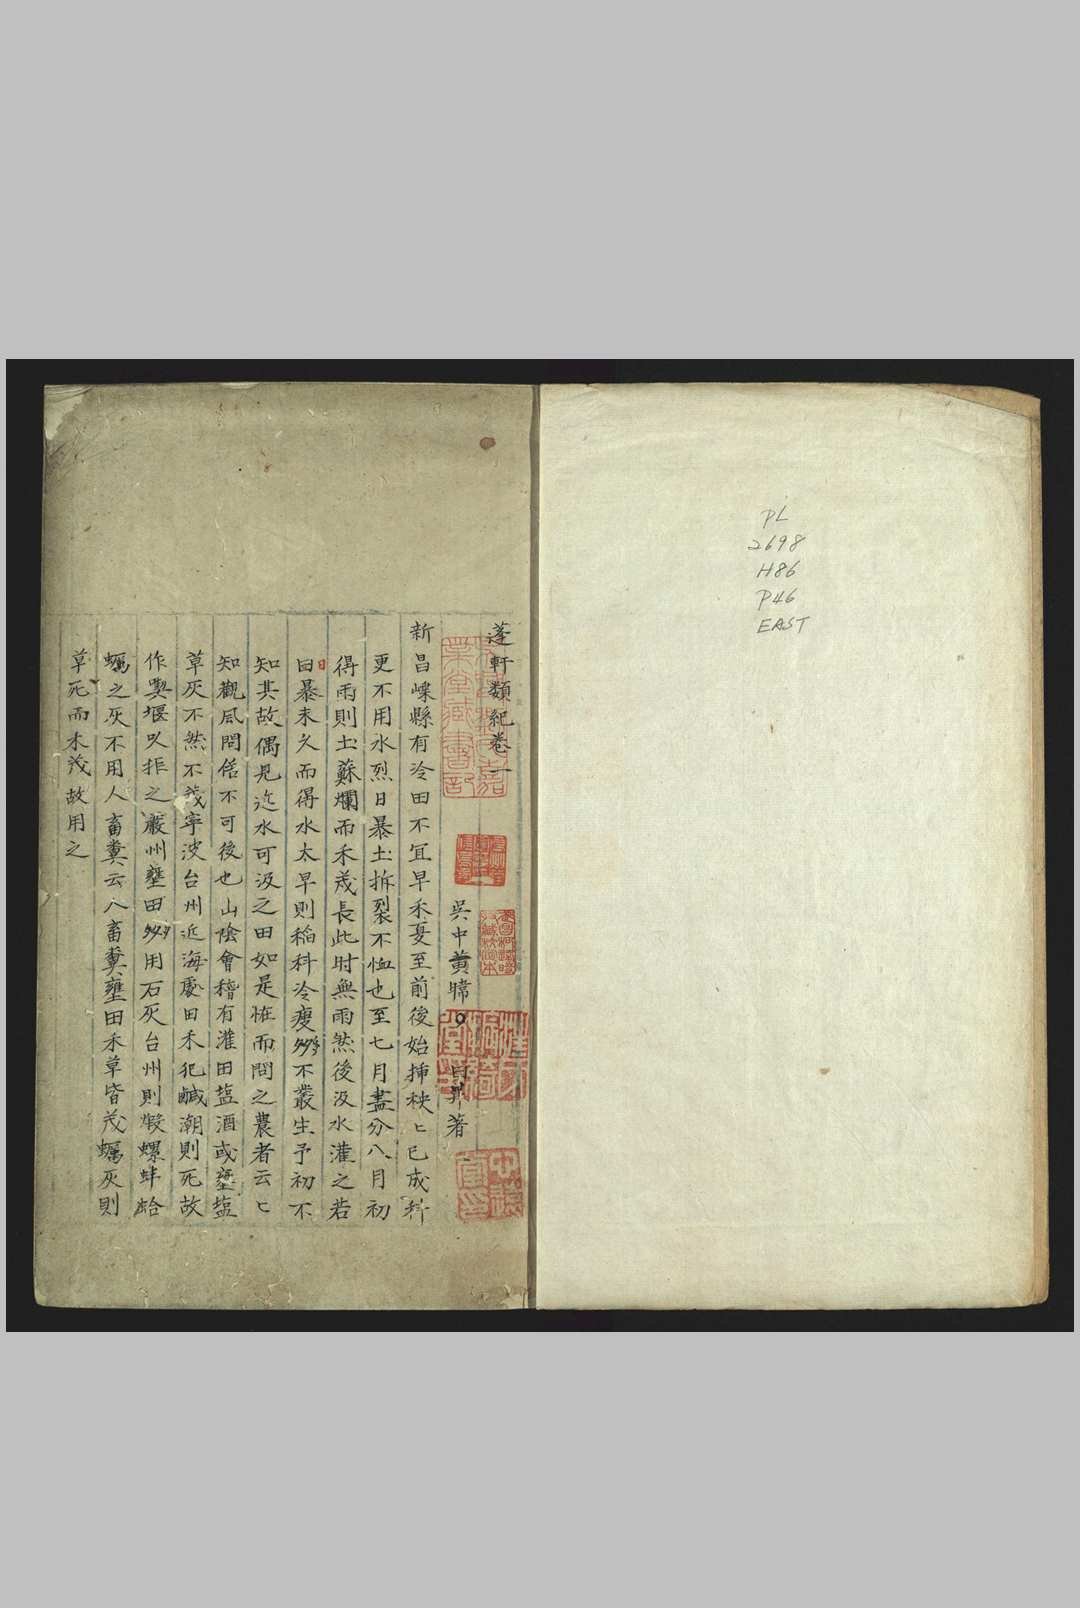 蓬軒類紀卷一
吳中黃暐日昇著
新昌嵊縣有冷田不宜早禾夏至前後始揷秧〻已成科
更不用水烈日暴土拆裂不恤也至七月盡分八月初
得雨則土蘇爛而禾茂長此时無雨然後汲水灌之若
日暴未久而得水太早則稲科冷瘦多不叢生予初不
知其故偶見近水可汲之田如是恠而問之農者云〻
知觀風問俗不可後也山陰會稽有灌田塩酒或壅塩
草灰不然不茂寧波台州近海處田禾犯鹹潮則死故
作堰以拒之嚴州壅田多用石灰台州則煅螺蚌蛤
蠣之灰不用人畜糞云人畜糞壅田禾草皆茂蠣灰則
草死而禾茂故用之
PL
2698
H86
P46
EAST